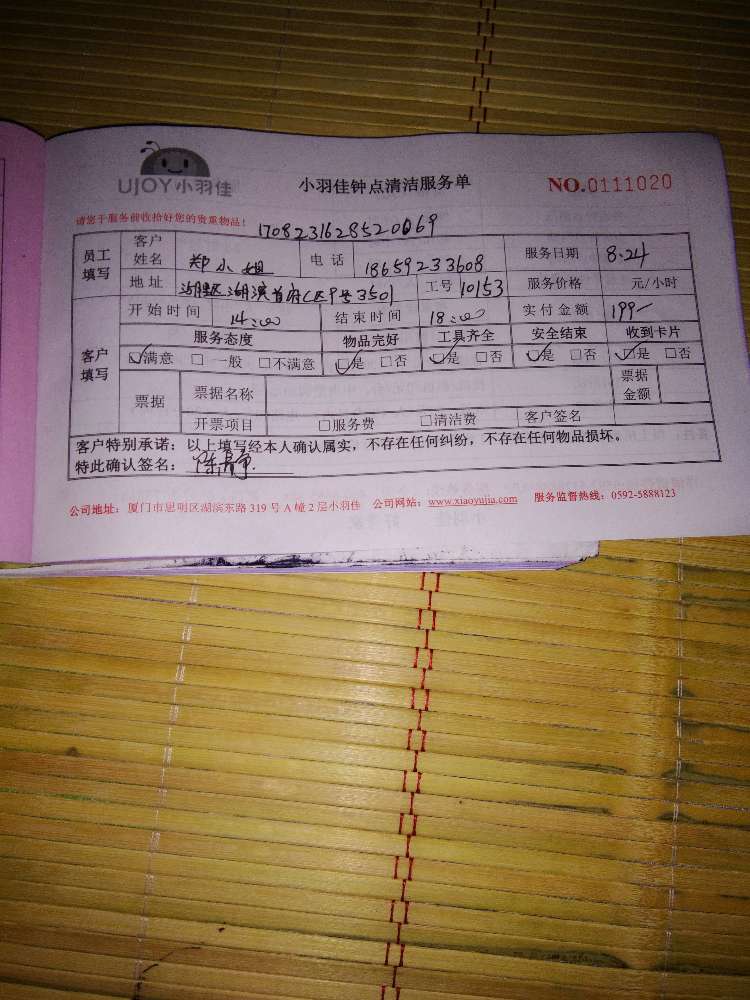 UJOY小羽佳 小羽佳钟点清洁服务单 NO.0111020
请您于服务前收拾好您的贵重物品!
1708231628520069
员工填写 客户姓名 郑小姐 电话 18659233608 服务日期 8.24
地址 湖里区湖滨首府C区9号3501 工号 10153 服务价格 元/小时
客户填写 开始时间 14:00 结束时间 18:00 实付金额 199-
服务态度 物品完好 工具齐全 安全结束 收到卡片
☑满意 □一般 □不满意 ☑是 □否 ☑是 □否 ☑是 □否 ☑是 □否
票据 票据名称 票据金额
开票项目 □服务费 □清洁费 客户签名
客户特别承诺:以上填写经本人确认属实,不存在任何纠纷,不存在任何物品损坏。
特此确认签名:陈静
公司地址:厦门市思明区湖滨东路319号A幢2层小羽佳 公司网站:www.xiaoyujia.com 服务监督热线:0592-5888123